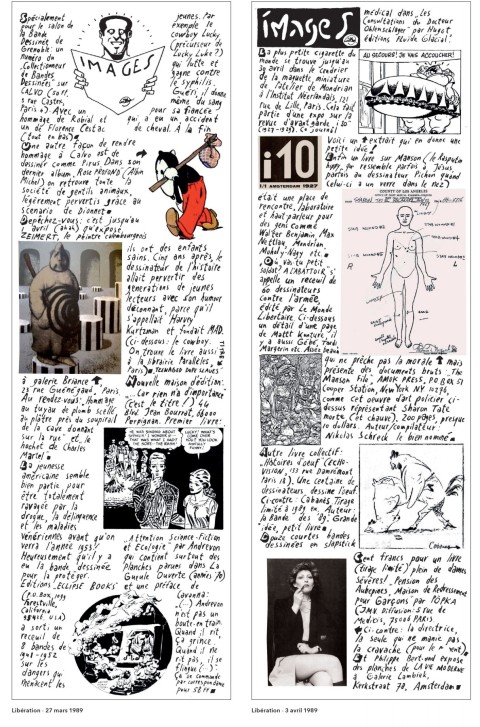 Spécialement
pour le salon de
la Bande
Dessinée de
Grenoble un
numéro du
Collectionneur
de Bandes
Dessinées sur
CALVO (3 rue
Castex,
Paris 4). Avec un
hommage de Robial et
un de Florence Cestac
(tout en bas).
Une autre façon de rendre
hommage à Calvo est de
dessiner comme Pirus. Dans son
dernier album, ROSE PROFOND (Albin
Michel) on retrouve toute la
société de gentils animaux,
légèrement pervertis grâce au
scénario de Dionnet.
Dépêchez-vous: c'est jusqu'au
1 avril (ahah) qu'expose
ZEIMERT, le peintre calembourgeois
IMAGES
jeunes. Par
exemple le
cowboy Lucky
(précurseur de
Lucky Luke?)
qui lutte et
gagne contre
le syphilis
Guéri, il donne
même du sang
pour sa fiancée
qui a eu un accident
de cheval. À la fin
ils ont des enfants
sains. Cinq ans après, le
dessinateur de l'histoire
allait pervertir des
générations de jeunes
lecteurs avec son humour
déconnant, parce qu'il
s'appellait Harvey
Kurtzman et fondait MAD.
(ci-dessous: le cowboy.
On trouve le livre aussi
à la librairie Parallèles
Paris). "TEENAGED DOPE SLAVES"
à galerie Briance
23 rue Guénégaud, Paris.
Au rendez-vous: Hommage
au tuyau de plomb scellé
de plâtre près du soupirail
de la cave donnant
sur la rue" et, le
hochet de Charles
Martel.
La jeunesse
américaine semble
bien partie pour
être totalement
ravagée par la
drogue, la délinquence
et les maladies
vénériennes avant qu'on
verra l'année 1953!
Heureusement qu'il y a
eu la bande dessinée
pour la protéger.
Editions "ECLIPSE BOOKS"
(P.O. Box, 1099
Forestville,
California,
95436, U.S.A)
a sorti un
receuil de
8 bandes de
1948-1952
sur les
dangers qui
menacent les
Nouvelle maison d'édition:
"...Car rien n'a d'importance"
(C'est le titre!) 44
Blvd Jean Bourrat, 66000
Perpignan. Premier livre:
"Attention Science-Fiction
et Ecologie" par Andrevon
qui contient surtout des
planches parues dans La
Gueule Ouverte (années 70)
et une préface de
Cavanna:
"(...) Andrevon
n'est pas un
boute-en-train.
Quand il rit,
ça grince.
Quand il ne
rit pas, il se
flingue (...)"
Ça se commande
par correspondance
pour 58 Frs.
Libération - 27 mars 1989
IMAGES
La plus petite cigarette du
monde se trouve jusqu'au
30 avril dans le cendrier
de la maquette miniature
de l'atelier de Mondrian
à l'Institut Néerlandais, 121
rue de Lille, Paris. Cela fait
partie d'une expo sur la
revue d'avant garde, i 10
(1927-1929). Ce journal
i10
1/1 AMSTERDAM 1927
était une place de
rencontre, laboratoire
et haut-parleur pour
des gens comme
Walter Benjamin, Max
Nettlau, Mondrian,
Moholy-Nagy etc.
Où vas tu petit
soldat? A L'ABATTOIR, s'
appelle un receuil de
60 dessinateurs
contre l'armée,
édité par Le Monde
Libertaire. Ci-dessous
un détail d'une page
de Matt Konture, il
y a aussi Gébé, Tardi,
Margerin etc. Assez beau
médical dans "Les
Consultations du Docteur
Oblenschlager" par Hugot,
éditions Fluide Glacial.
AU SECOURS! JE VAIS ACCOUCHER!
Voici un extrait qui en donne une
petite idée!
Enfin un livre sur Manson (le Rasputin
hippy, qui ressemble parfois à Jésus
parfois au dessinateur Pichon quand
celui-ci a un verre dans le nez)
COUNTY OF LOS ANGELES
qui ne prêche pas la morale mais
présente des documents bruts: "The
Manson File", AMOK PRESS, PO BOX 51
Cooper Station, New York, NY 10276,
comme cet oeuvre d'art policier ci-
dessus représentant Sharon Tate
morte. (Vet chaud), 200 pages, presque
10 dollars. Auteur/compilateur:
Nikolas Schreck le bien nommé.
Autre livre collectif:
"Histoires d'oeuf" (ECHO-
VISION, 133 rue Damrémont
Paris 18). Une centaine de
dessinateurs dessine l'oeuf.
Ci-contre: Cabanes. Tirage
limité à 1989 ex. Auteur:
la bande des 89. Grande
idée, petit livre.
Douze courtes bandes
dessinées en slapstick
Cabanes
Cent francs pour un livre
(tirage limité) plein de dames
sévères! "Pension des
Aubépines, Maison de Redressement
pour Garçons" par POPKA
(JMV. Diffusion: 5 rue de
Médicis, 75006 PARIS.
Ci-contre: la directrice,
la seule qui ne manie pas
la cravache (pour le moment).
Et Philippe Bertrand expose
des planches de LA VIE MODERNE
à Galerie Lambiek,
Kerkstraat 78, Amsterdam
Libération - 3 avril 1989